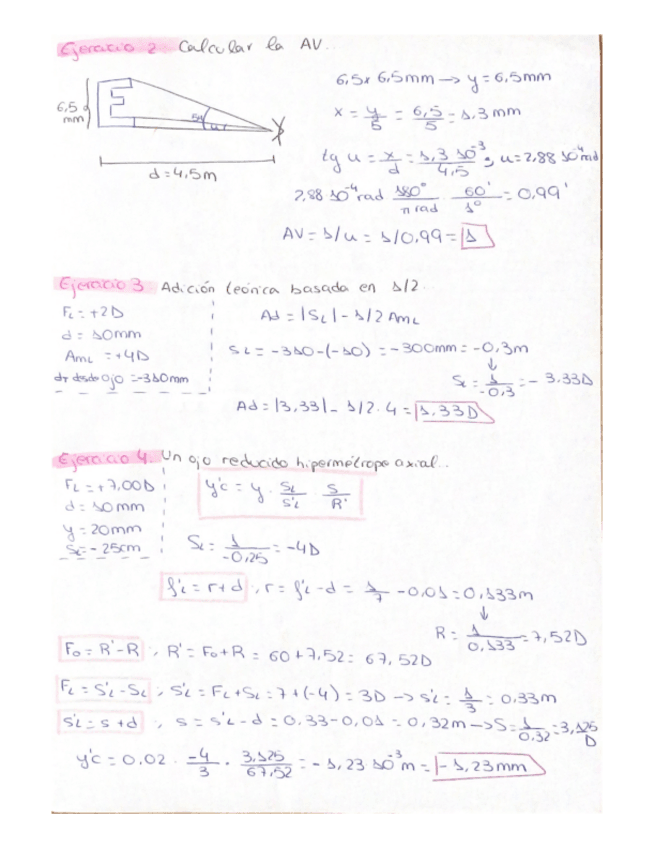 Ejercicio 2 Calcular la AV.
6,5x 6,5mm → y = 6,5mm
6,5
mm
5u
u
d = 4,5m
x = y/5 = 6,5/5 = 1,3 mm
tg u = x/d = 1,3 10⁻³/4,5 ; u = 2,88 10⁻⁴rad
2,88 10⁻⁴rad 180°/π rad · 60'/1° = 0,99'
AV = 1/u = 1/0,99 = 1
Ejercicio 3 Adición teórica basada en 1/2..
FL = +2D
d = 10mm
AmL = +4D
dt desde ojo = -310mm
Ad = |SL| - 1/2 AmL
sL = -310-(-10) = -300mm = -0,3m
↓
SL = 1/-0,3 = -3.33D
Ad = |3,33| - 1/2·4 = 1,33D
Ejercicio 4. Un ojo reducido hipermétrope axial...
FL = +7,00D
d = 10mm
y = 20mm
SL = -25cm
y'c = y · SL/S'L · S/R'
SL = 1/-0,25 = -4D
f'L = r + d , r = f'L - d = 1/7 - 0,01 = 0,133m
↓
R = 1/0,133 = 7,52D
Fo = R' - R , R' = Fo + R = 60 + 7,52 = 67,52D
FL = S'L - SL , S'L = FL + SL = 7 + (-4) = 3D → s'L = 1/3 = 0,33m
s'L = s + d , s = s'L - d = 0,33 - 0,01 = 0,32m → S = 1/0,32 = 3,125 D
y'c = 0,02 · -4/3 · 3,125/67,52 = -1,23 10⁻³m = -1,23mm